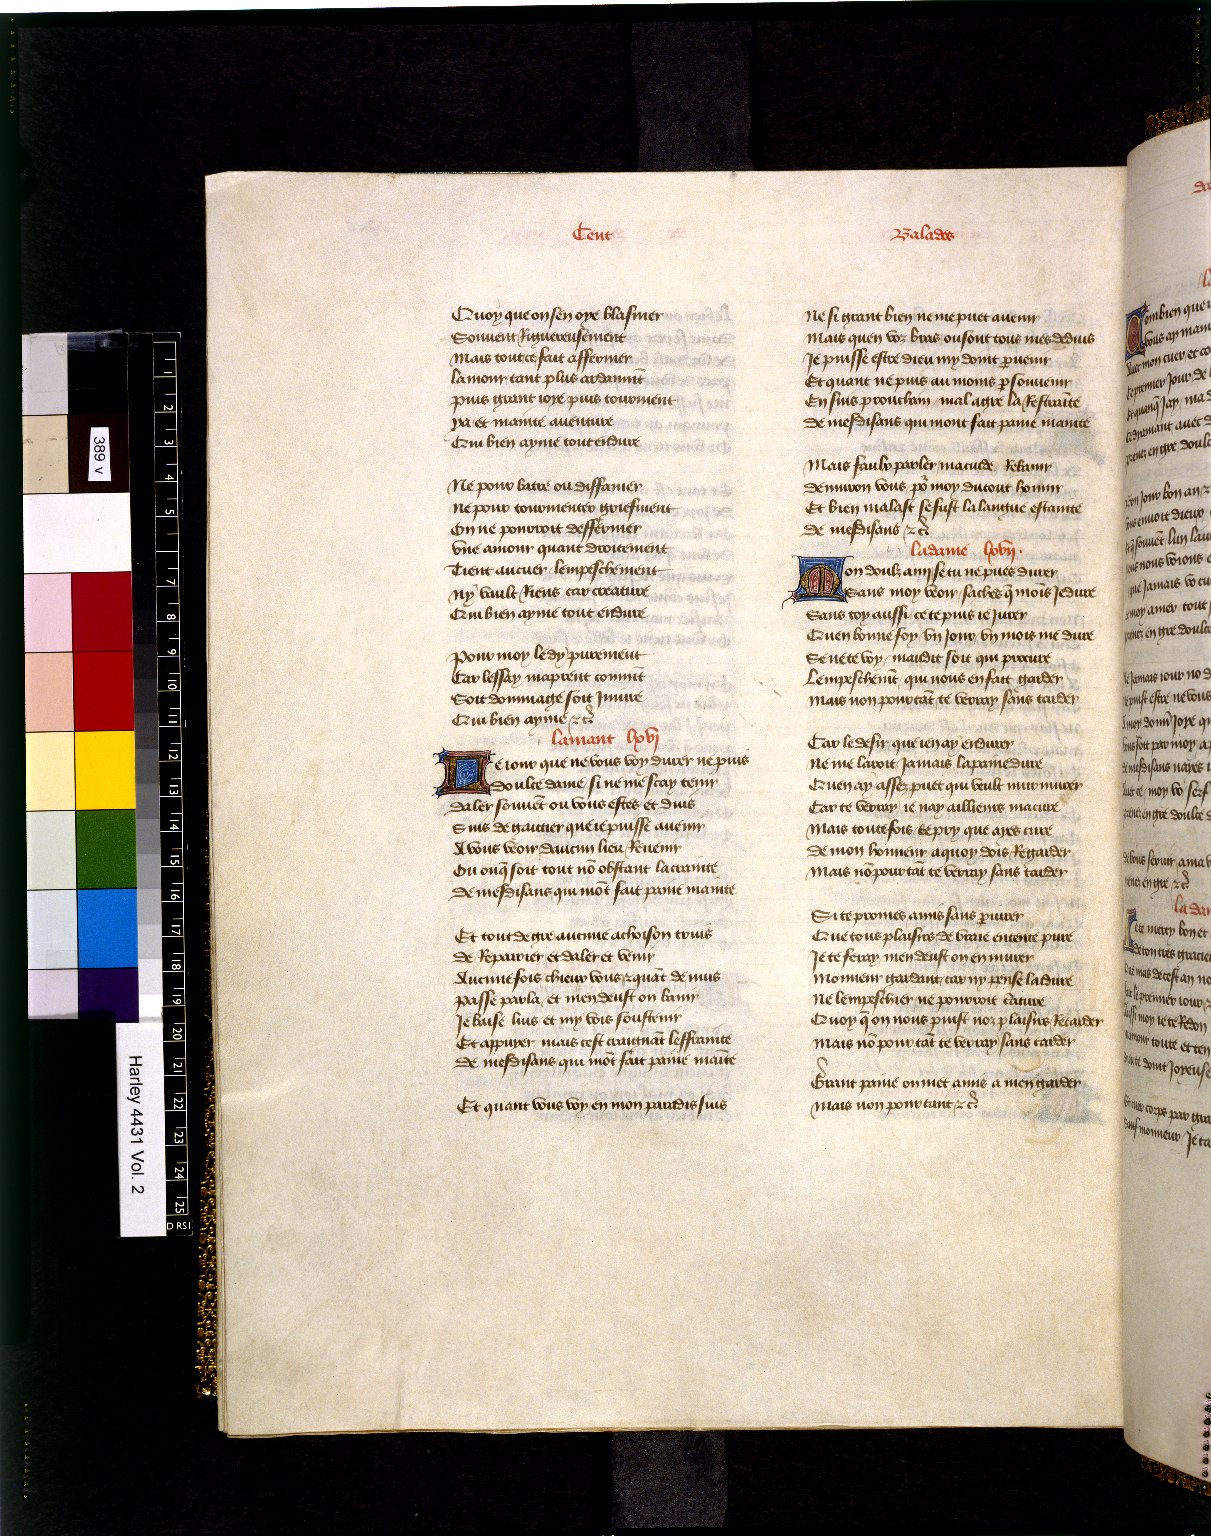 Cent
Quoy que on sen oye blasmer
Souvent Rigueureusement
Mais tout ce fait affermer
lamour tant plus ardanmt
puis grant ioye puis tourment
ya et mainte auenture
Qui bien ayme tout endure
Ne pour batre ou diffamer
ne pour tourmenter griefment
On ne pourroit deffermer
vne amour quant droitement
Tient au cuer lempeschement
ny vault Riens car creature
Qui bien ayme tout endure
Pour moy le dy purement
Car lessay maprent commt
Soit dommage soit Iniure
Qui bien ayme etc
lamant lxvj
Le iour que ne vous voy durer ne puis
doulce dame si ne me scay tenir
daler souuet ou vous estes et duis
Suis de gaitier que ie puisse auenir
A vous veoir dauam lieu Reuenir
Ou onq soit tout no obstant la crainte
de mesdisans qui mot fait paine mainte
Et tout de gre aucune achoison truis
de Repairier et daler et venir
Aucune fois chieux vous et quat de nuis
passe par la et men deust on banir
Je baise luis et my vois soustenir
Et appuyer mais cest craignat leffrainte
de mesdisans qui mot fait paine mainte
Et quant vous voy en mon paradis suis
Balades
Ne si grant bien ne me puet auenir
Mais quen voz bras ou sont tous mes deduis
Je puisse estre dieu my doint puenir
Et quant ne puis au moins p souuenir
En suis prouchain mal a gre la Restrainte
de mesdisans qui mont fait paine mainte
Mais faulx parler macuide Retenir
denuiron vous po moy du tout honnir
Et bien malast se fust la langue estainte
de mesdisans etc
la dame lxvij
Mon doulz ami se tu ne pues durer
Sans moy veoir saches q mois Je dure
Sans toy aussi ce te puis ie Jurer
Quen bonne foy vn Jour vn mois me dure
Se ne te voy maudit soit qui procure
Lempeschemt qui nous en fait garder
Mais non pourtat te verray sans tarder
Car le desir que ien ay endurer
Ne me lairoit Jamais la paine dure
Quen ay assez puet qui veult murmurer
Car te verray ie nay aillieurs macure
Mais toutefois te pry que ayes cure
de mon honneur a quoy dois Regarder
Mais no pourtat te verray sans tarder
Si te promes amis sans piurer
Que tous plaisirs de vraie entente pure
Je te feray men deust on enmurer
Monneur gardant car ny pense laidure
Ne lempeschier ne pourroit cature
Quoy q on nous puist noz plaisirs Retarder
Mais no pourtat te verray sans tarder
Grant paine on met amis a men garder
Mais non pourtant etc
389 v
Harley 4431 Vol. 2
1
2
3
4
5
7
8
9
10
11
12
13
14
15
16
17
18
19
20
21
22
23
24
25